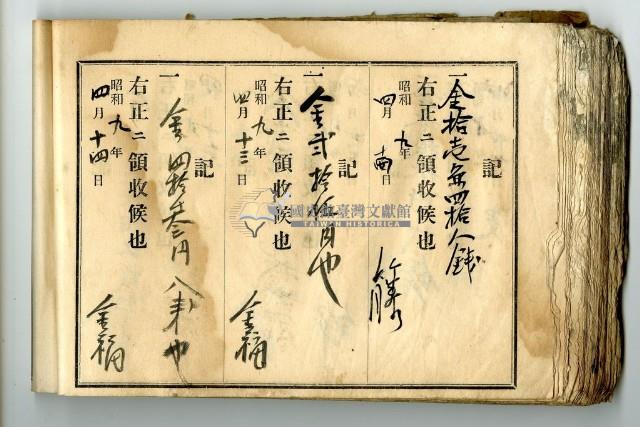 記
一金拾壱円四拾八銭
右正ニ領收候也
昭和九年
四月 日
記
一金弐拾 円也
右正ニ領收候也
昭和九年
四月十三日
金福
記
一金四拾参円八 也
右正ニ領收候也
昭和九年
四月十四日
金福
國史館臺灣文獻館
TAIWAN HISTORICA